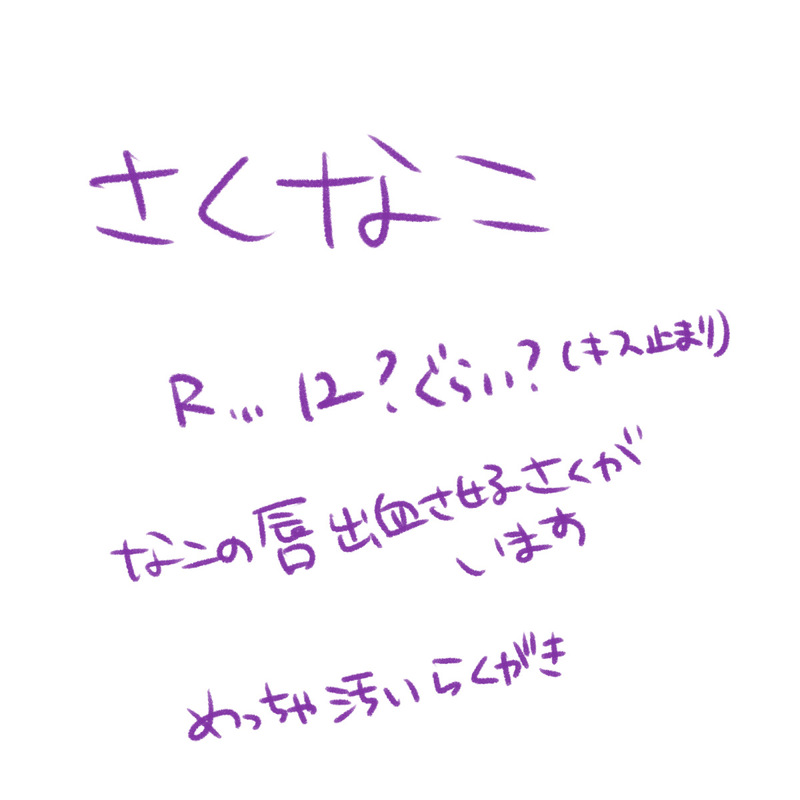 さくなこ
R... 12?ぐらい?(キス止まり)
なこの唇出血させ好さくが
います
めっちゃ汚いらくがき